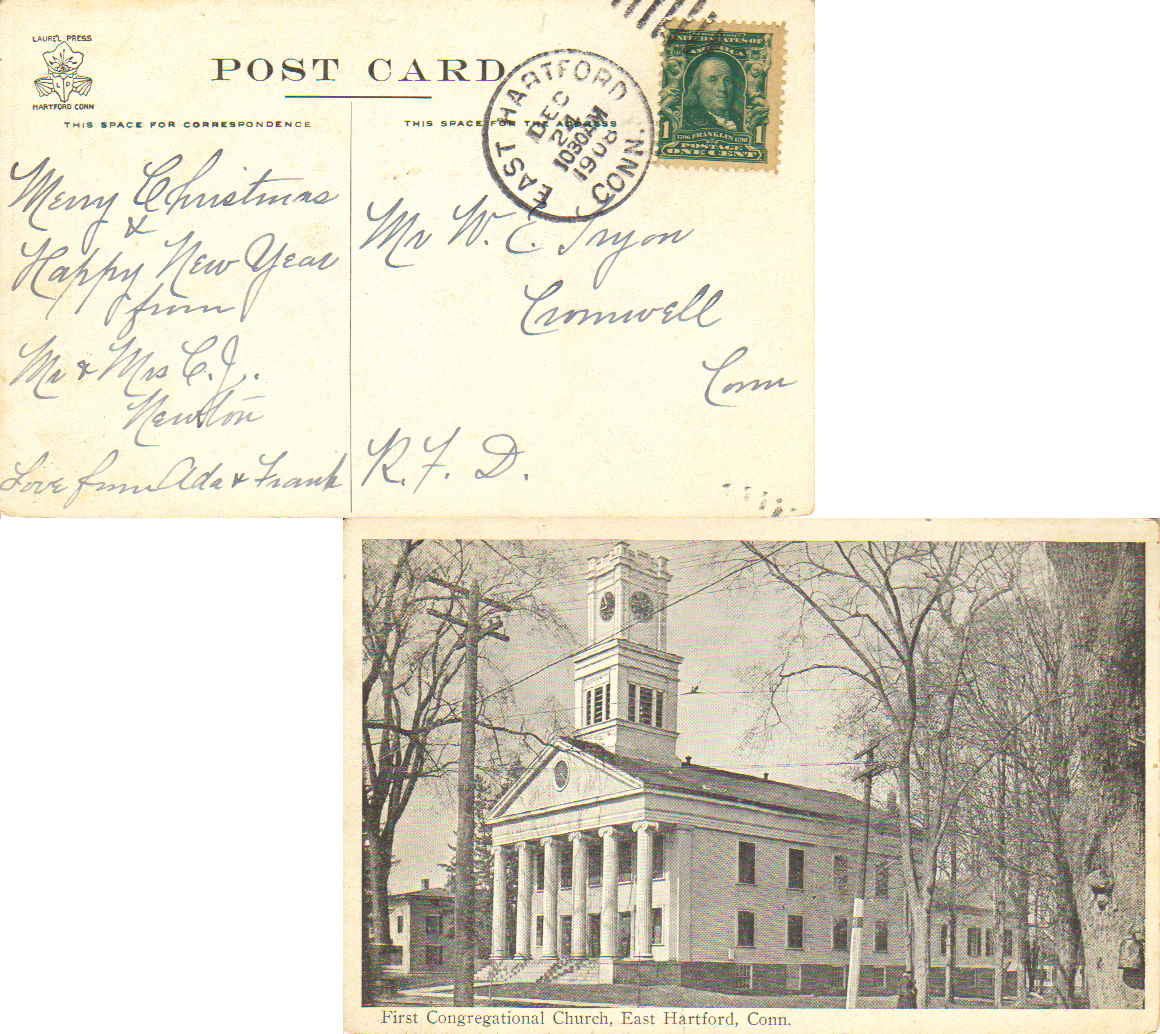 LAUREL PRESS
L P
HARTFORD CONN
POST CARD
THIS SPACE FOR CORRESPONDENCE
THIS SPACE FOR THE ADDRESS
EAST HARTFORD CONN.
DEC
24
1030AM
1908
UNITED STATES OF
AMERICA
1706 FRANKLIN 1790
1 POSTAGE 1
ONE CENT
Merry Christmas
&
Happy New Year
from
Mr & Mrs C. J.
Newton
Love from Ada & Frank
Mr W. E. Tryon
Cromwell
Conn
R. F. D.
First Congregational Church, East Hartford, Conn.